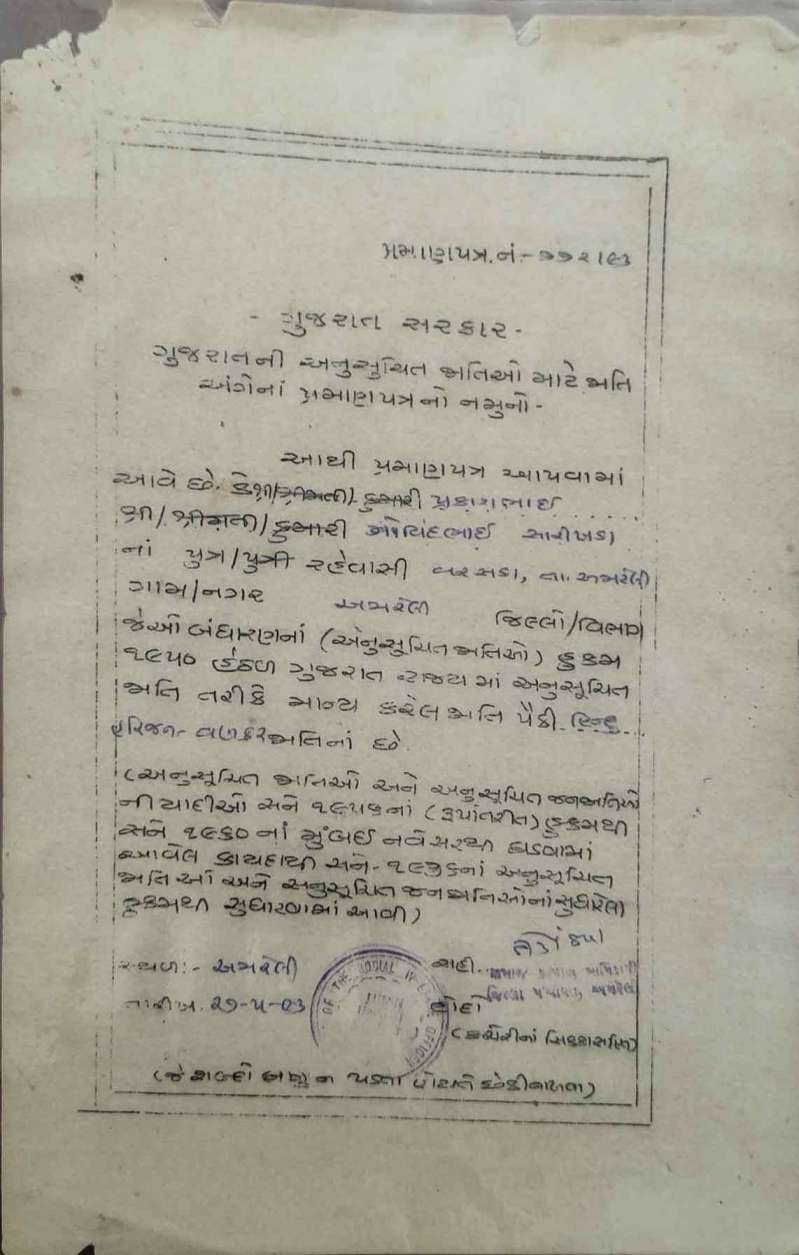 પ્રમાણપત્ર.નં.- ૧૧૨/૯૩
- ગુજરાત સરકાર -
ગુજરાતની અનુસુચિત જાતિઓ માટે જાતિ
અંગેનાં પ્રમાણપત્રનો નમુનો -
આથી પ્રમાણપત્ર આપવામાં
આવે છે. કે શ્રી/શ્રીમતી/કુમારી પ્રકાશભાઈ
શ્રી/શ્રીમતી/કુમારી અરવિંદભાઈ સારીખડા
નાં પુત્ર/પુત્રી રહેવાસી વરસડા, તા. અમરેલી
ગામ/નગર અમરેલી જિલ્લો/વિભાગ
જેઓ બંધારણનાં (અનુસુચિત જાતિઓ) હુકમ
૧૯૫૦ હેઠળ ગુજરાત રાજ્યમાં અનુસૂચિત
જાતિ તરીકે માન્ય કરેલ જાતિ પૈકી હિન્દુ
હરિજન- વણકર જાતિનાં છે.
(અનુસૂચિત જાતિઓ અને અનુસૂચિત જનજાતિઓ
ની યાદીઓ સને ૧૯૫૬નાં (રૂપાંતરીત) હુકમથી
સને ૧૯૬૦ નાં મુંબઈ નવેસરથી ઘડવામાં
આવેલ કાયદાથી સને- ૧૯૭૬નાં અનુસૂચિત
જાતિઓ અને અનુસૂચિત જનજાતિઓનાં સુધારેલા
હુકમથી સુધારવામાં આવી)
સ્થળ:- અમરેલી સહી. સમાજ કલ્યાણ અધિકારી
જિલ્લા પંચાયત, અમરેલી
તારીખ. ૨૭-૫-૦૩ હોદ્દો
(કચેરીનાં સિક્કાસહિત)
(જે શબ્દો લાગુ ન પડતા હોય તે છેકી નાખવા)